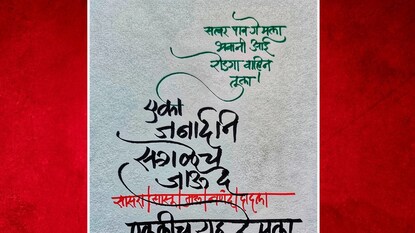 सत्वर पाव गे मला
भवानी आई
रोडगा वाहिन
तुला!
एका
जनार्दनि
सगळेच
जाऊ दे
सासरा|सासू|जाऊ|नणंद|दादला
एकलीच राहू दे मला